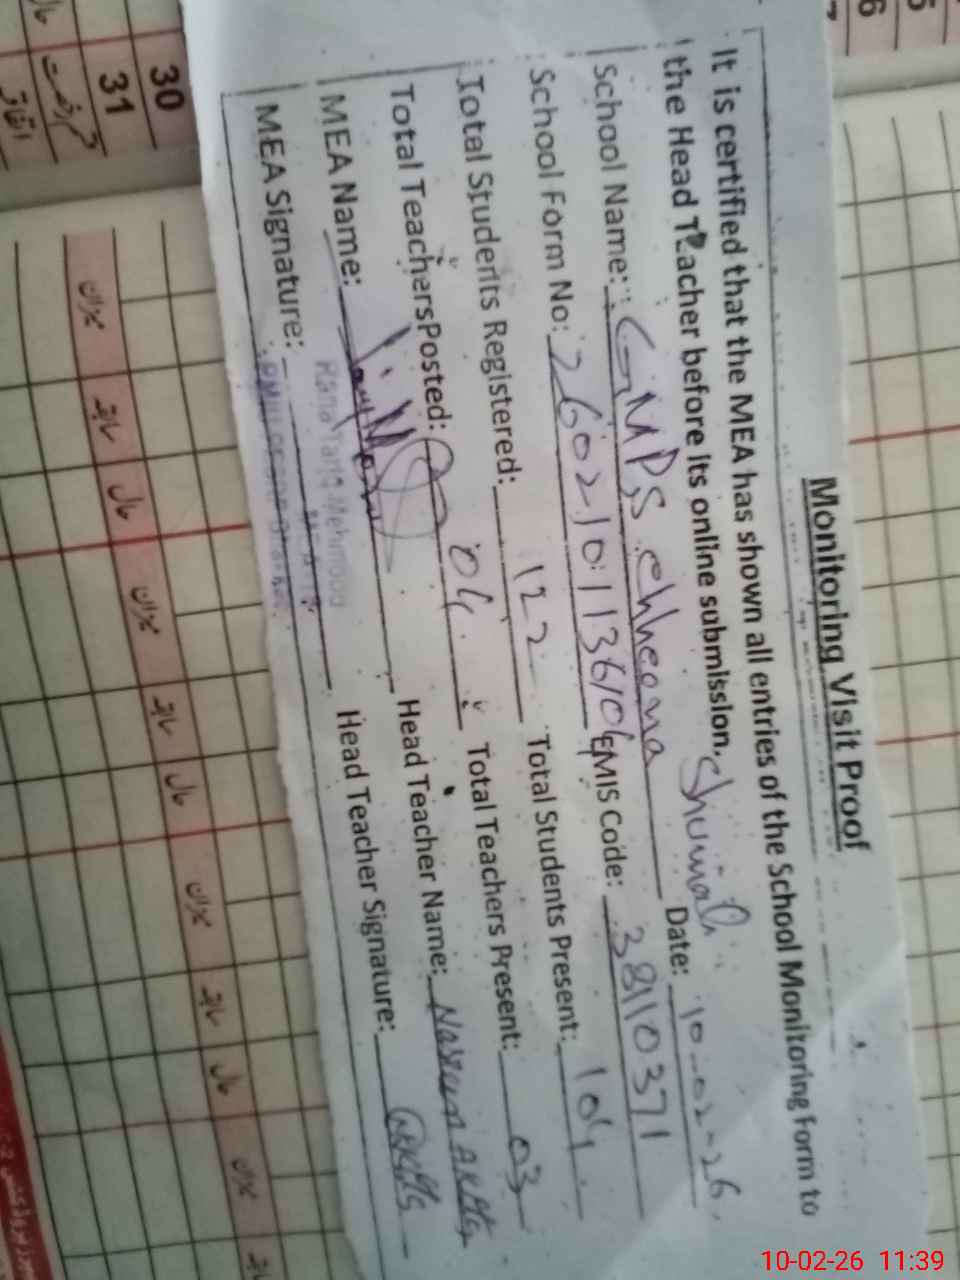 Monitoring Visit Proof
It is certified that the MEA has shown all entries of the School Monitoring Form to
the Head Teacher before its online submission.
School Name: GMPS Chheena Shumali Date: 10-02-26
School Form No: 2602101136104 EMIS Code: 38110371
Total Students Registered: 122 Total Students Present: 104
Total Teachers Posted: 04 Total Teachers Present: 03
MEA Name: Head Teacher Name: Naseem Akhtar
Rana Tariq Mehmood
MEA Signature: Head Teacher Signature:
30
31
میزان
سابقہ
حال
میزان
سابقہ
حال
میزان
سابقہ
حال
میزان
سابقہ
10-02-26 11:39